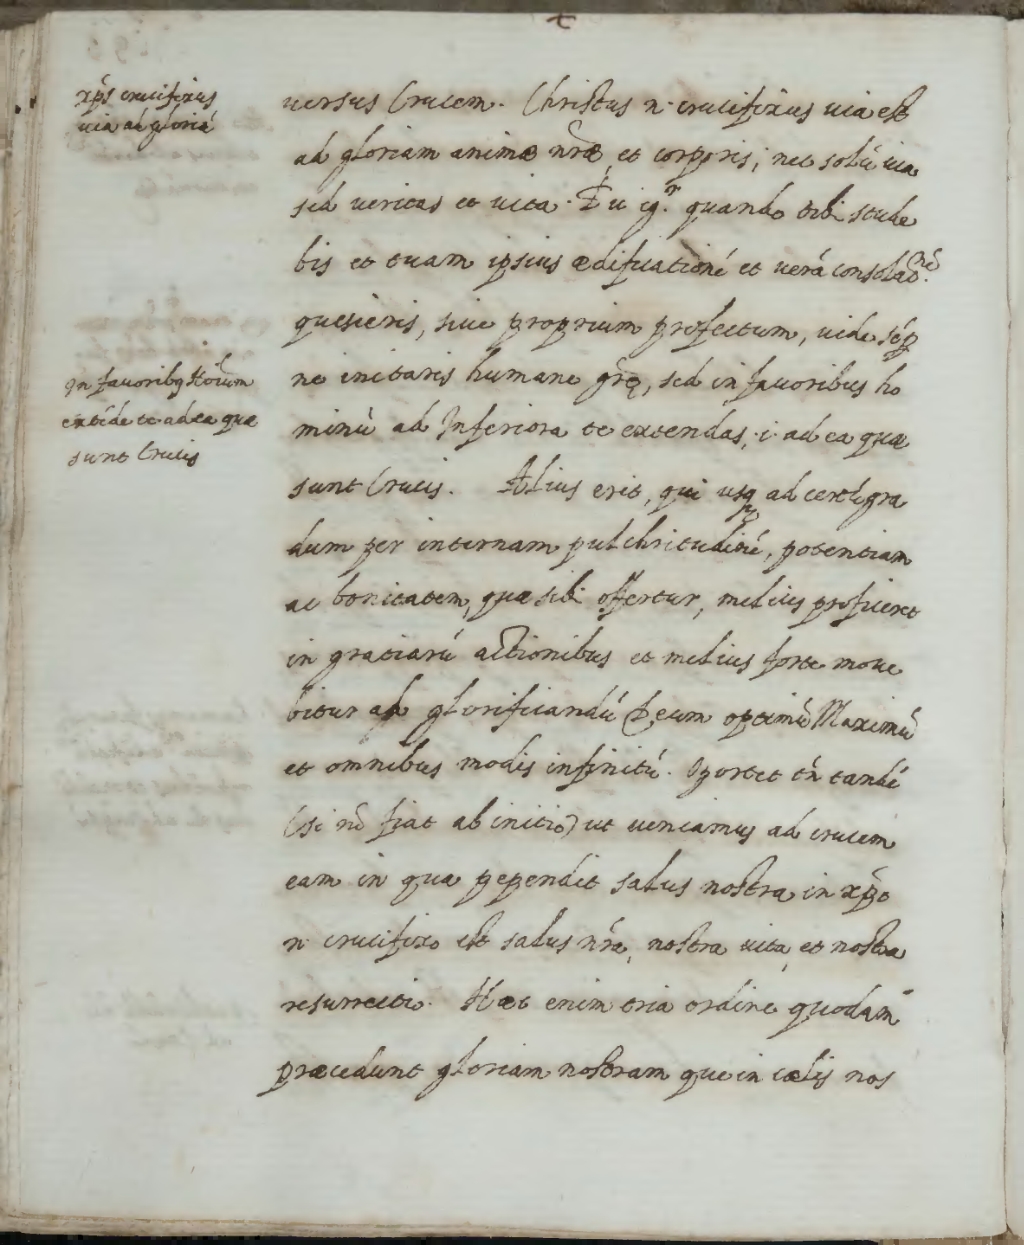 xp̃s crucifixus
uia ad gloriã
uersus Crucem. Christus n. crucifixus uia est
ad gloriam animæ nr̃æ, et corporis, nec solũ uia
sed ueritas et uita. Tu igr̃. quando tibi stude
bis et tuam ipsius ædificationẽ et uerã consolaõ.nẽ
quesieris, siue proprium profectum, uide sẽp
ne initaris humane gr̃ę, sed in fauoribus ho
In fauoribq Hoĩum
extẽde te ad ea quæ
sunt Crucis
minũ ad Inferiora te extendas, .i. ad ea quæ
sunt Crucis. Alius erit, qui usq ad certũ gra
dum per internam pulchritudinẽ, potentiam
ac bonitatem, quæ sibi offertur, melius proficiet
in gratiarũ actionibus et melius forte moue
bitur ad glorificandũ Deum optimũ Maximũ
et omnibus modis infinitũ. Oportet tñ tandẽ
(si nõ fiat ab initio) ut ueniamus ad crucem
eam in qua pependit salus nostra, in xp̃o
n. crucifixo est salus nr̃a, nostra uita, et nostra
resurrectio. Hæc enim tria ordine quodam
præcedunt gloriam nostram que in cælis nos